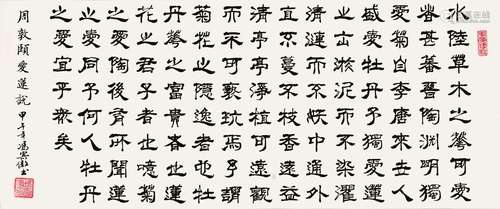 水陸草木之華可愛
者甚蕃晉陶淵明獨
愛菊自李唐來世人
盛愛牡丹予獨愛蓮
之出淤泥而不染濯
清漣而不妖中通外
直不蔓不枝香遠益
清亭亭淨植可遠觀
而不可褻玩焉予謂
菊花之隱逸者也牡
丹華之富貴者也蓮
花之君子者也噫菊
之愛陶後鮮有聞蓮
之愛同予何人牡丹
之愛宜乎眾矣
周敦頤愛蓮說 甲午年馮書